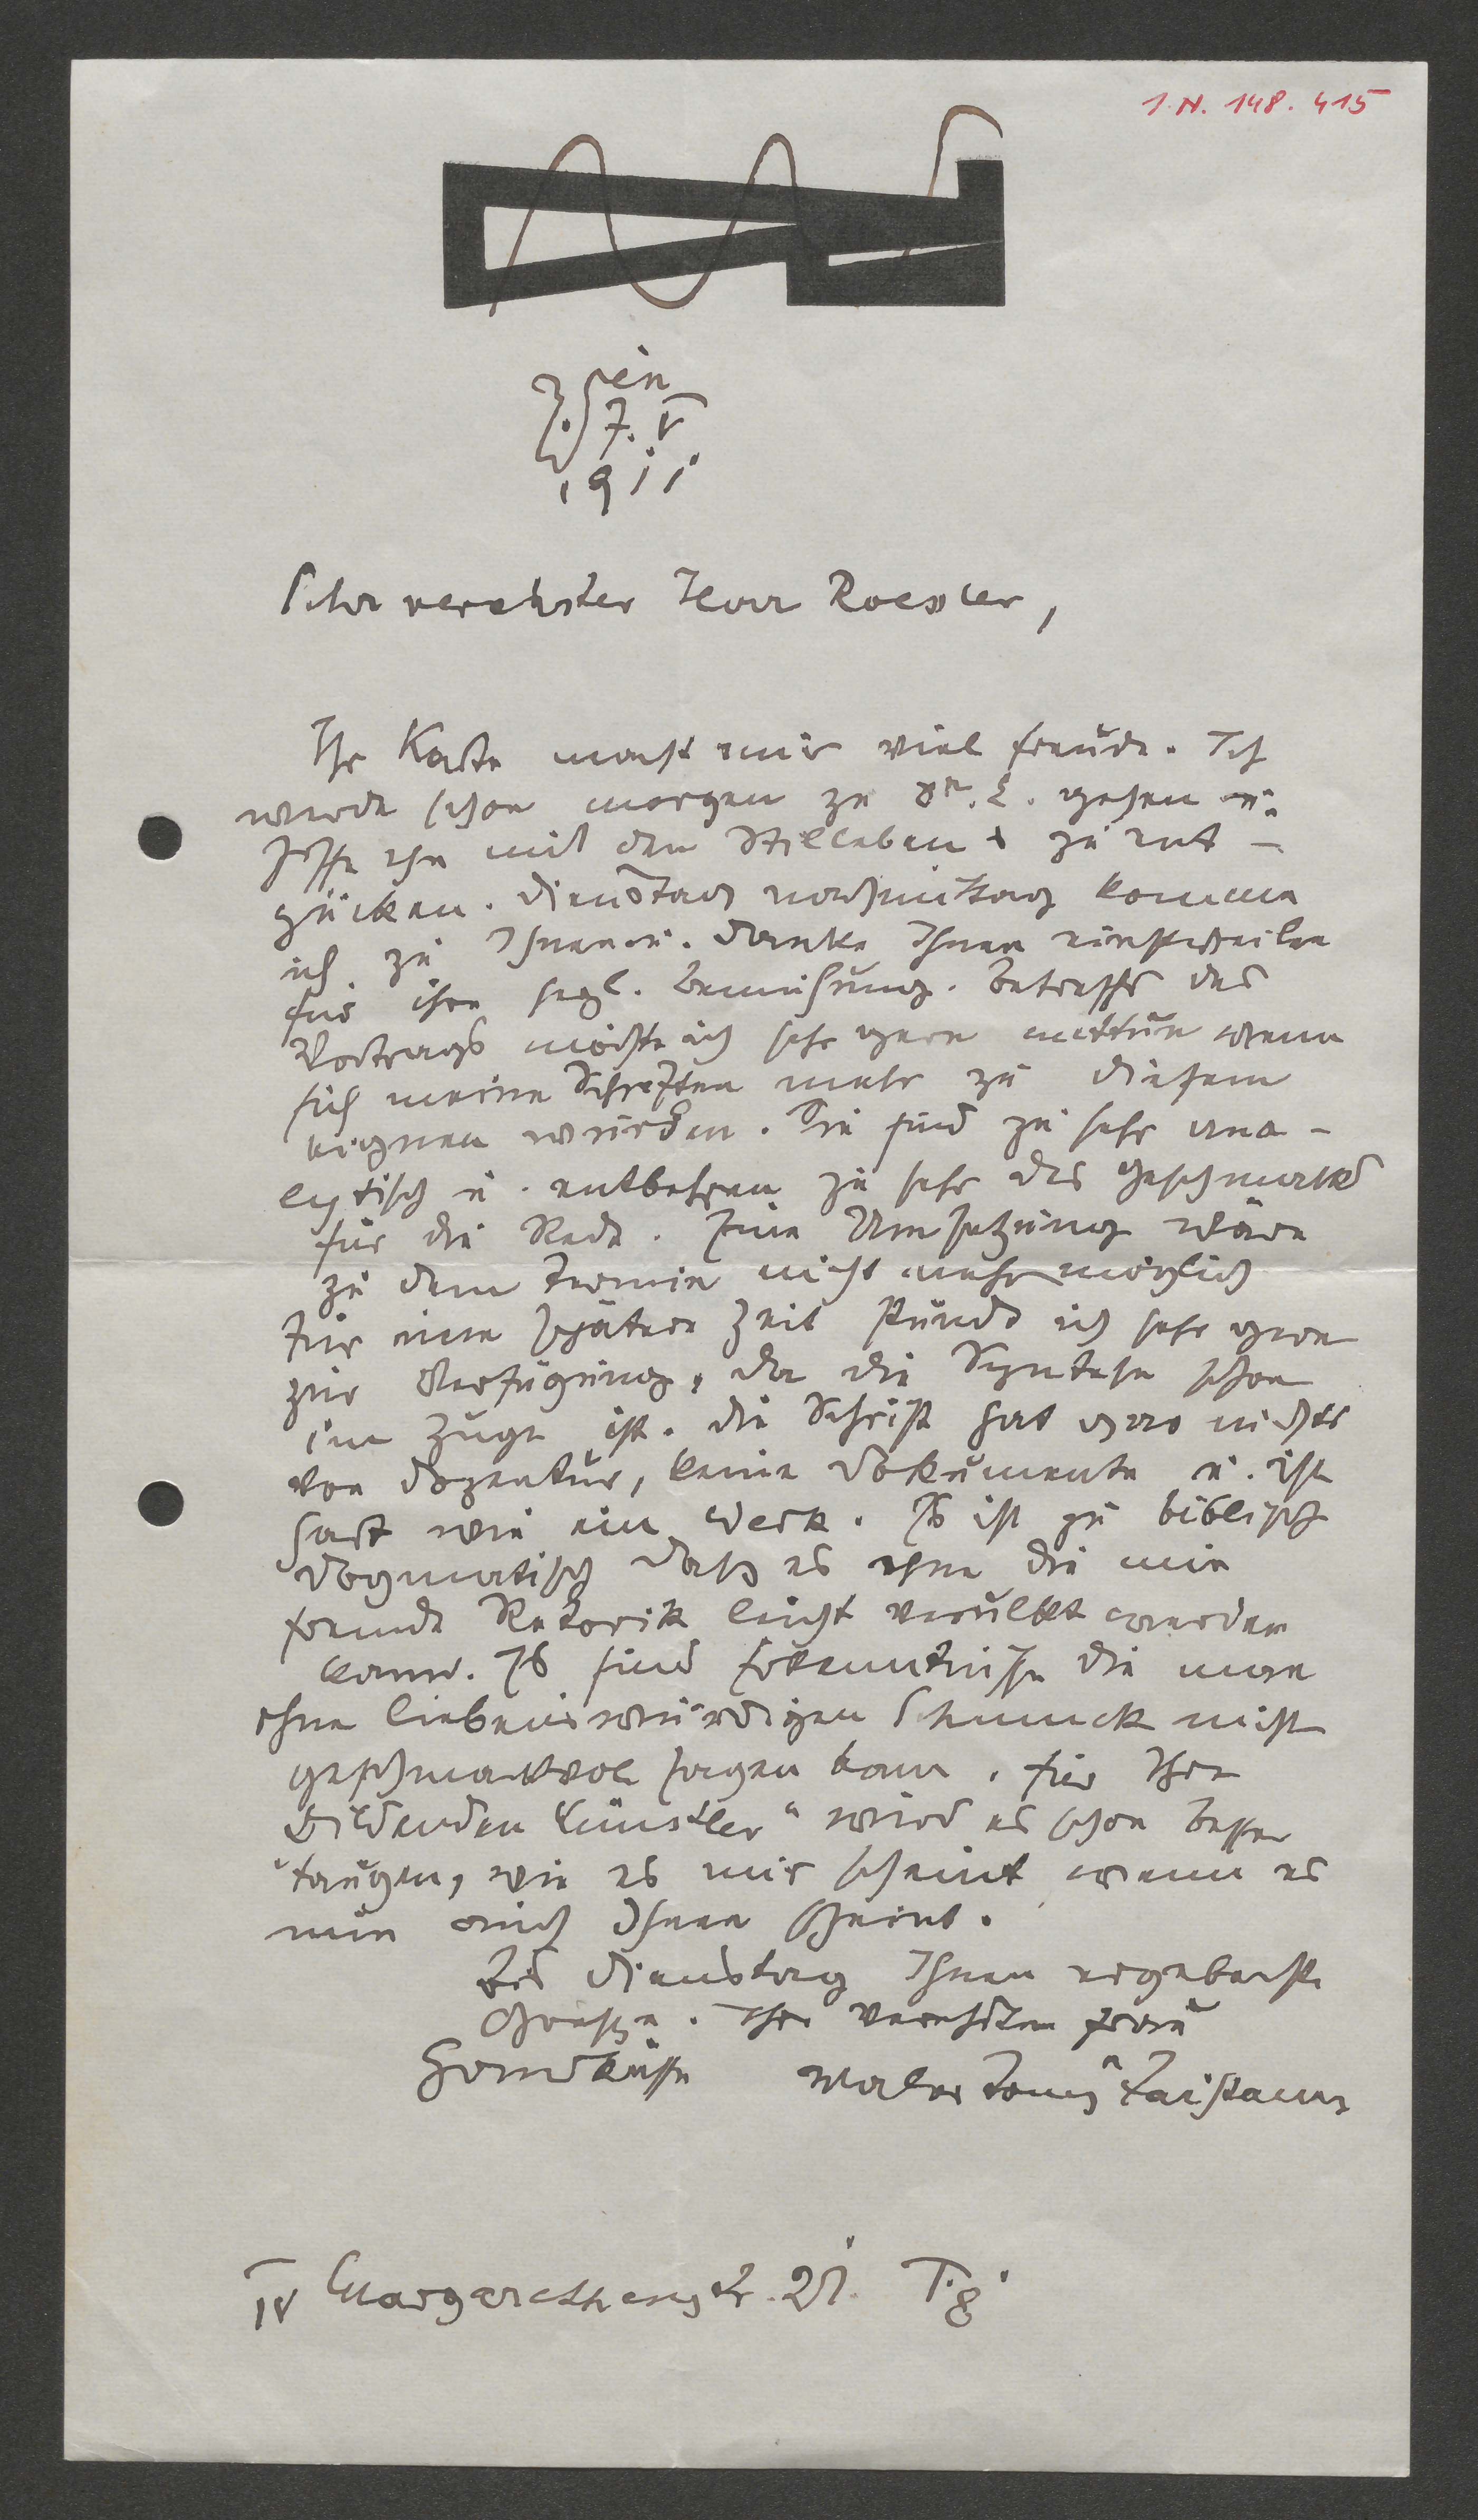 I.N. 148.415
Wien
7. V
1911
Sehr verehrter Herr Roessler,
Ihr Karte macht mir viel Freude. Ich
werde schon morgen zu Dr. L. gehen u.
hoffe ihn mit den Stilleben zu ent-
zücken. Dienstag nachmittag komme
ich zu Ihnen u. danke Ihnen einstweilen
für ihre frdl. Bemühung. Betreffs des
Vortrags möchte ich sehr gern mittun wenn
sich meine Schriften mehr zu diesem
eignen würden. Sie sind zu sehr ana-
lytisch u. entbehren zu sehr des Geschmacks
für die Rede. Eine Umsetzung wäre
zu dem Termin nicht mehr möglich
Für eine spätere Zeit stünde ich sehr gern
zur Verfügung, da die Syntese schon
im Zuge ist. Die Schrift hat gar nichts
von Dozentur, keine Dokumente u. ist
hart wie ein Werk. Es ist zu biblisch
dogmatisch daß es ohne die mir
fremde Retorik leicht verulkt werden
kann. Es sind Erkenntnisse die man
ohne liebenswürdigen Schmuck nicht
geschmackvoll sagen kann. Für Ihre
Bildenden Künstler" wird es schon besser
taugen, wie es mir scheint wenn es
nun auch Ihnen scheint.
Bis Dienstag Ihnen ergebenste
Grüsze. Ihrer verehrten Frau
Handküsse Maler Tony Faistauer
IV Margarethenstr. 21. T. 8